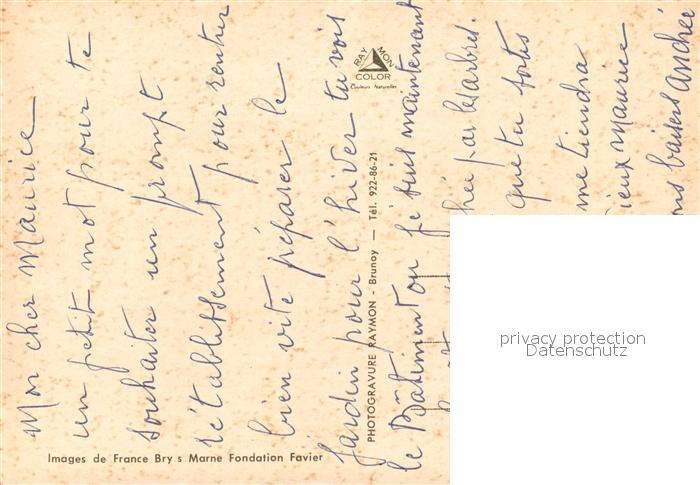 Mon cher Maurice
un petit mot pour te
souhaiter un prompt
rétablissement pour rentrer
bien vite préparer le
jardin pour l'hiver tu vois
le Bâtiment ou je suis maintenant
par les arbres.
que tu fortes
me tiendra
vieux Maurice
bons baisers Andrée
RAYMON
COLOR
Couleurs Naturelles
PHOTOGRAVURE RAYMON - Brunoy — Tél. 922-86-21
Images de France Bry s Marne Fondation Favier
privacy protection
Datenschutz